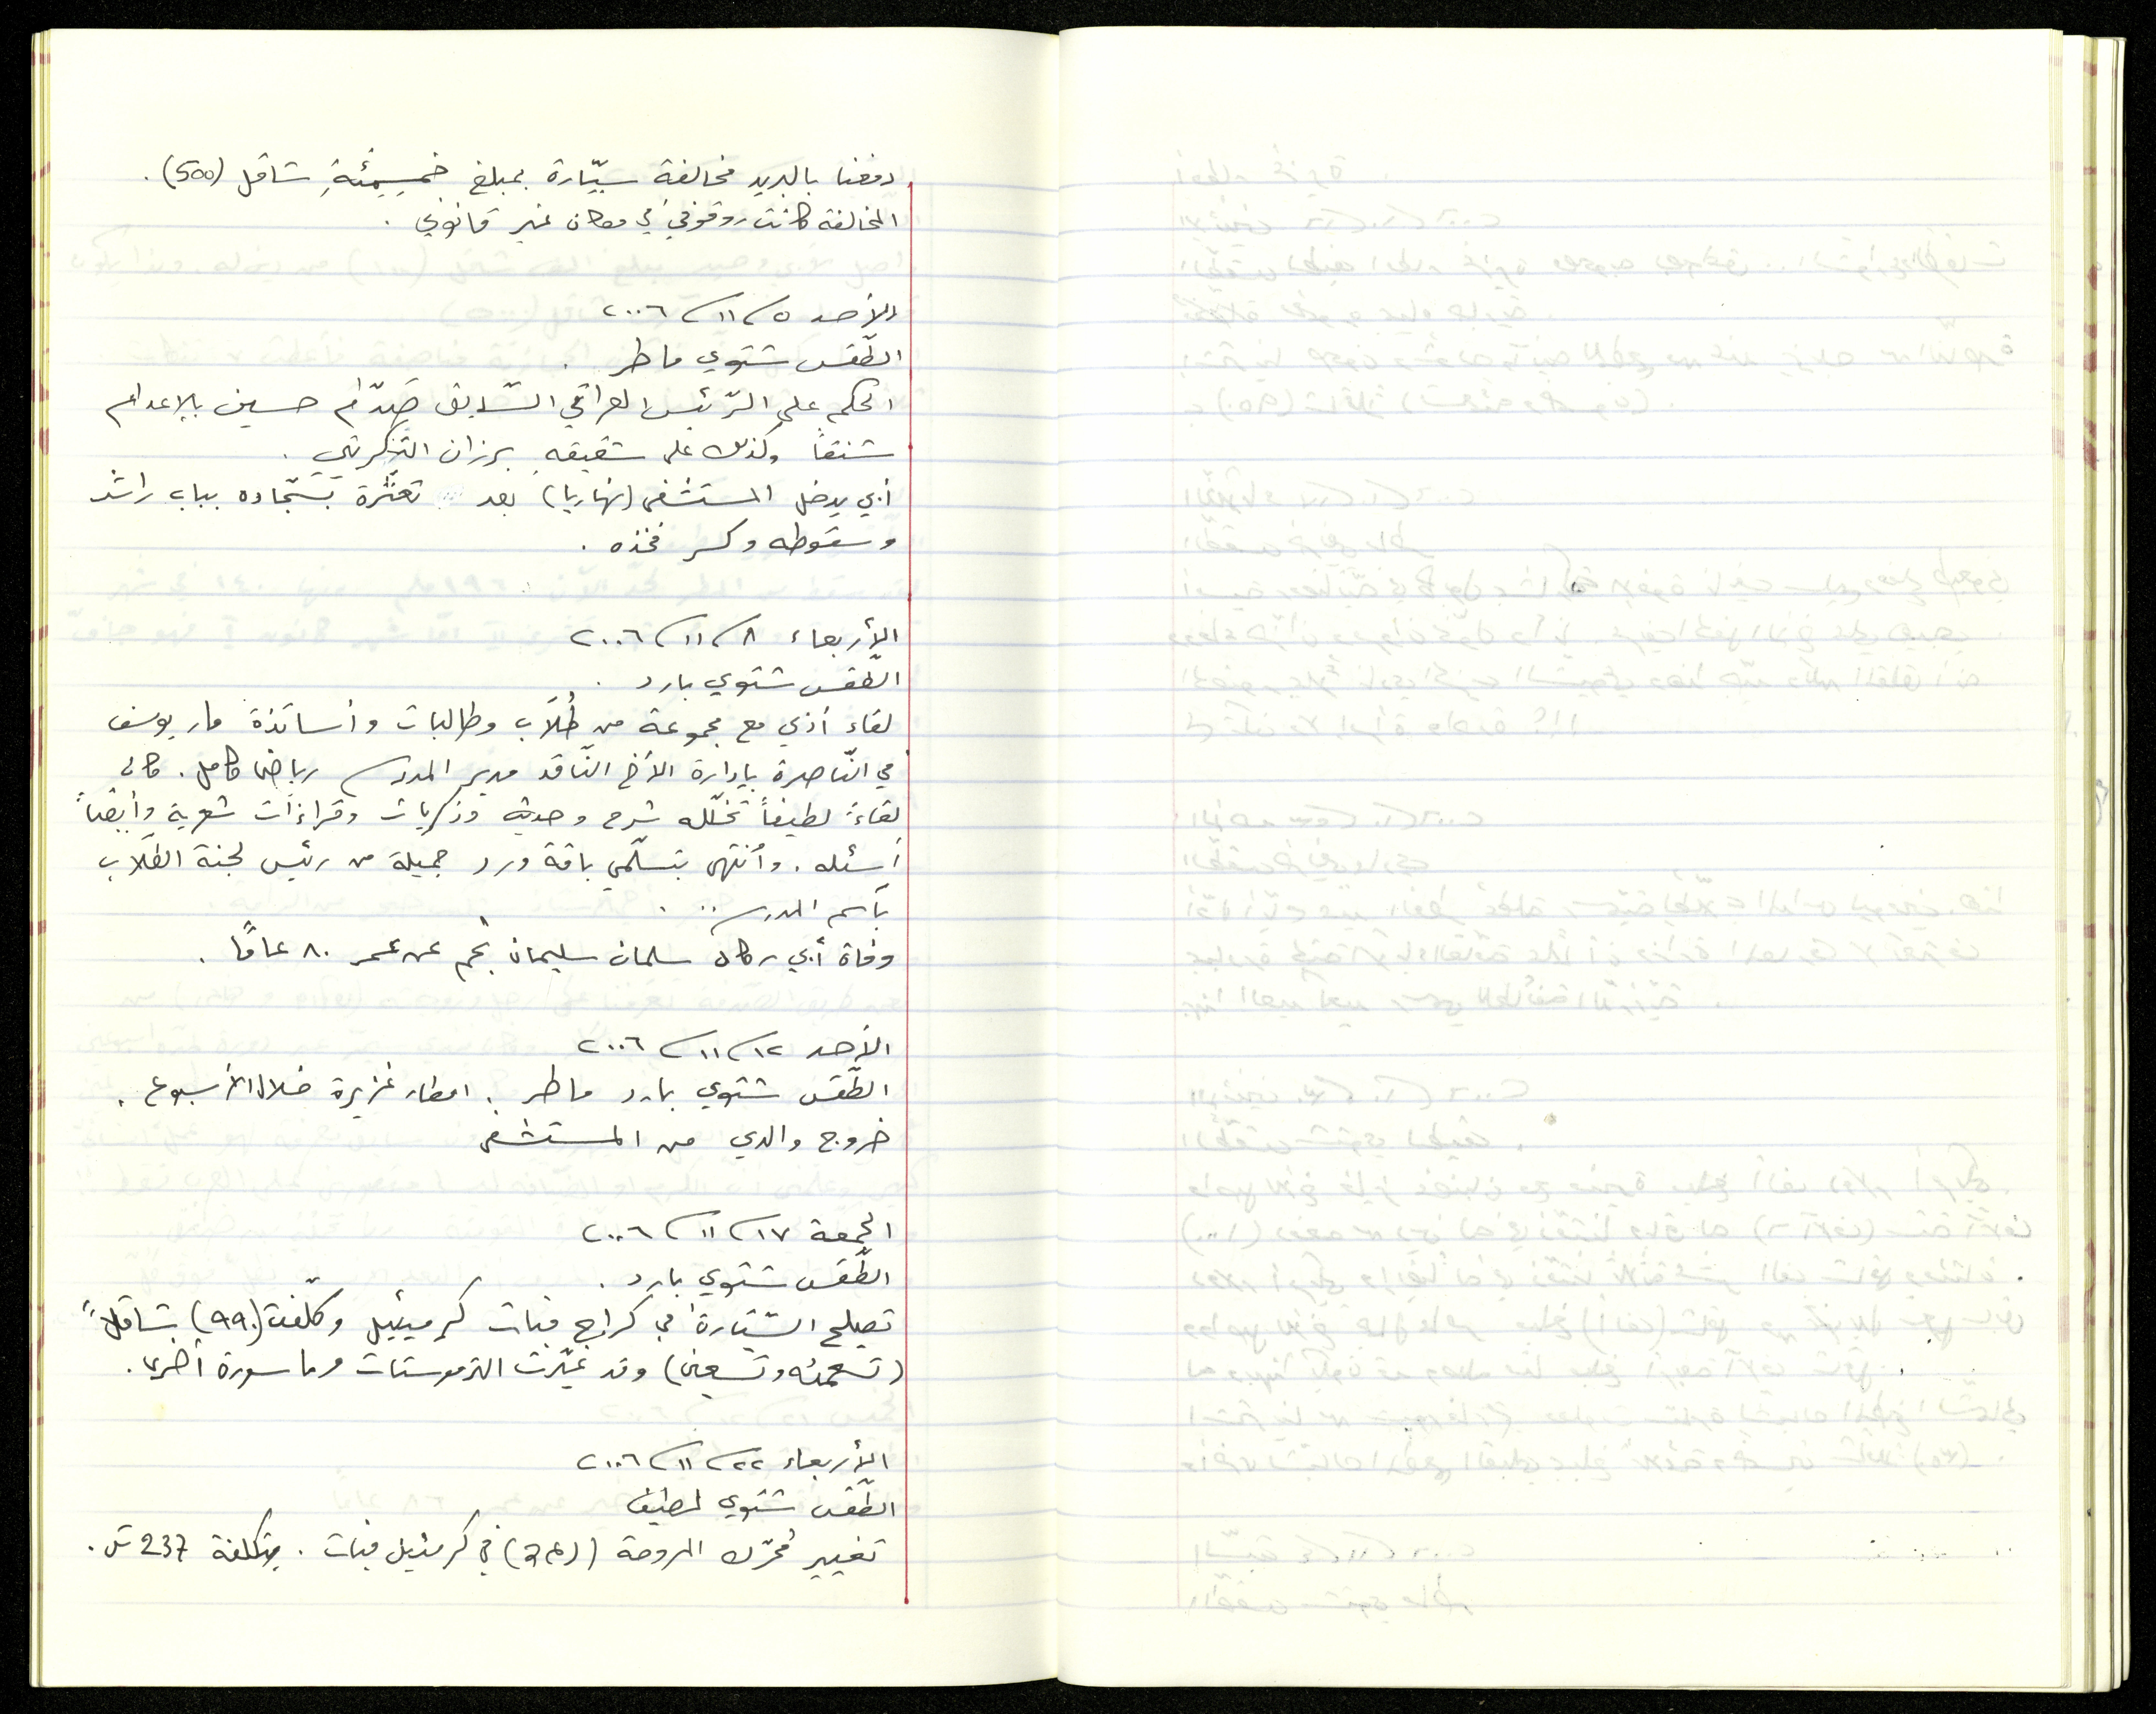 دفعنا بالبريد مخالفة سيّارة بمبلغ خمسِمئةِ شاقل (500).
المخالفة كانت وقوفي في مكان غير قانوني.
الأحد ٥/١١/٢٠٠٦
الطّقس شتوي ماطر.
الحكم على الرّئيس العراقي السّابق صدّام حسين بالإعدام
شنقاً وكذلك على شقيقهِ برزان التكريتي.
أبي يدخل المستشفى (نهاريا) بعد تعثّره بسّجاده بباب راشد
وسقوطه وكسر فخذه.
الأربعاء ٨/١١/٢٠٠٦
الطّقس شتوي بارد.
لقاء أدبي مع مجموعة من طُلاّب وطالبات وأساتذة مار يوسف
في النّاصرة بإدارة الأخ النّاقد مدير المدرسة رياض كامل. كان
لقاءً لطيفاً تخلّله شرح وحديث وذكريات وقراءات شعرية وأيضاً
أسئله. وأنتهى بتسلّمي باقة ورد جميلة من رئيس لجنة الطّلاب
بأسم المدرسة..
وفاة أبي ركان سلمان سليمان نجم عن عمر ٨٠ عامًا.
الأحد ١٢/١١/٢٠٠٦
الطّقس شتوي بارد ماطر. امطار غزيرة خلال الأسبوع.
خروج والدي من المستشفى
الجمعة ١٧/١١/٢٠٠٦
الطّقس شتوي بارد.
تصليح السّيّارة في كراج فيات كرميئيل وكلّفت (٩٩٠) شاقلاً
(تسعمئه وتسعين) وقد غيّرت الترموستات وماسورة أخرى.
الأربعاء ٢٢/١١/٢٠٠٦
الطّقس شتوي لطيف
تغيير مُحرّك المروحة في كرمئيل فيات. بتكلفة 237 ش.